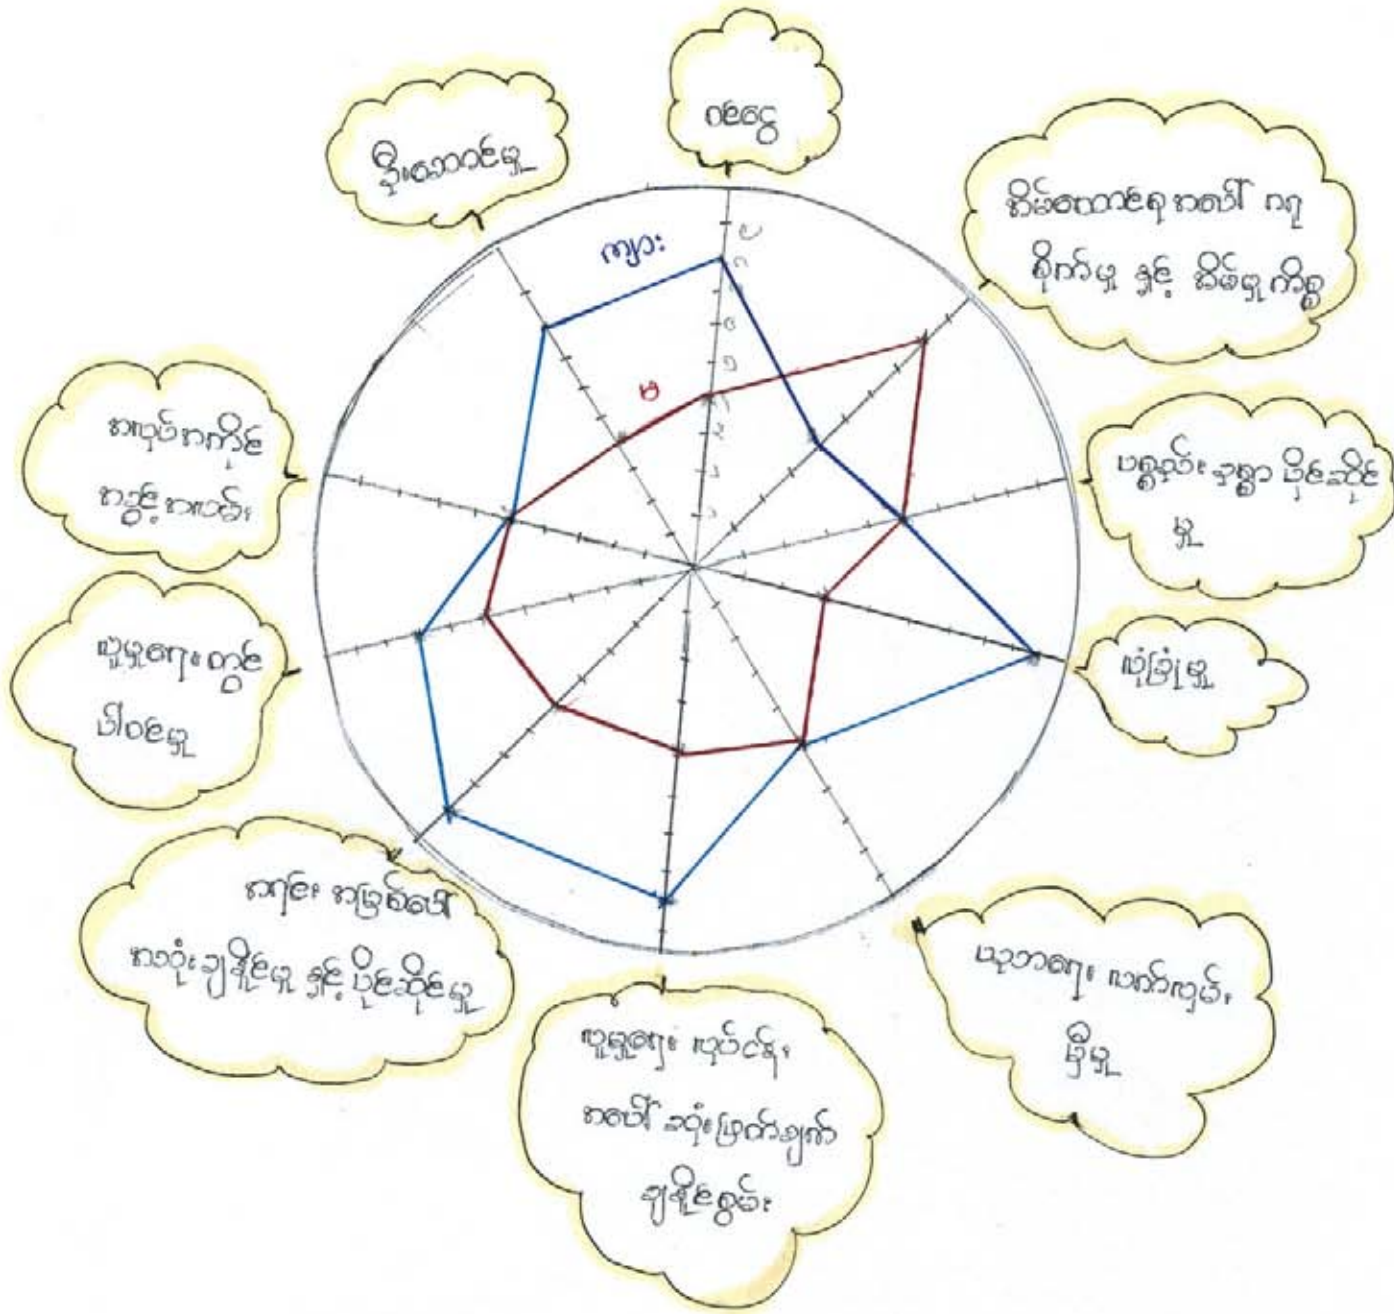 ဝင်ငွေ
အိမ်ထောင်စုအပေါ် ဂရု
စိုက်မှု နှင့် အိမ်မှုကိစ္စ
ပစ္စည်းဥစ္စာ ပိုင်ဆိုင်
မှု
လုံခြုံမှု
ပညာရေး လက်လှမ်း
မှီမှု
လူမှုရေး လုပ်ငန်း
အပေါ် ဆုံးဖြတ်ချက်
ချနိုင်စွမ်း
အရင်း အမြစ်ပေါ်
အသုံးချနိုင်မှု နှင့် ပိုင်ဆိုင်မှု
လူမှုရေးတွင်
ပါဝင်မှု
အလုပ်အကိုင်
အခွင့်အလမ်း
ဦးဆောင်မှု
ကျား
မ